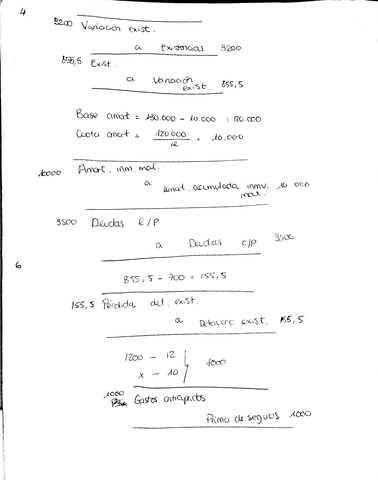 4
3200 Variación exist.
a Existencias 3200
855,5 Exist.
a Variación
exist. 855,5
Base amort = 130.000 - 10.000 = 120.000
Cuota amort = 120000 / 12 = 10.000
10000 Amort. inm. mat.
a Amort. acumulada inmv. 10.000
mat.
3500 Deudas l/p
a Deudas c/p 3500
6
855,5 - 700 = 155,5
155,5 Pérdida det. exist.
a Deterioro exist. 155,5
1200 - 12
x - 10
1000
1000 Gastos anticipados
Prima de seguros 1000